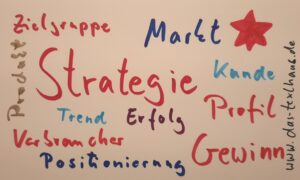 Zielgruppe
Markt
Produkt
Strategie
Kunde
Trend
Erfolg
Profil
Verbraucher
Positionierung
Gewinn
www.das-texthaus.de